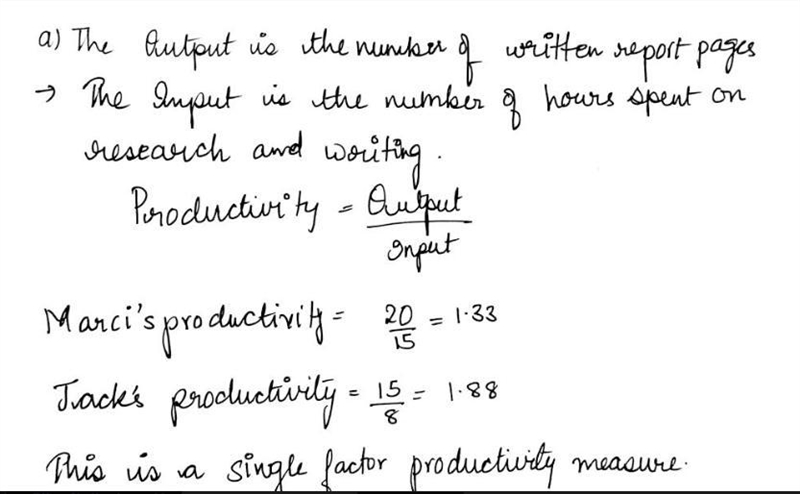 a) The Output is the number of written report pages
→ The Input is the number of hours spent on
research and writing.
Productivity = Output
Input
Marci's productivity = 20/15 = 1.33
Jack's productivity = 15/8 = 1.88
This is a single factor productivity measure.